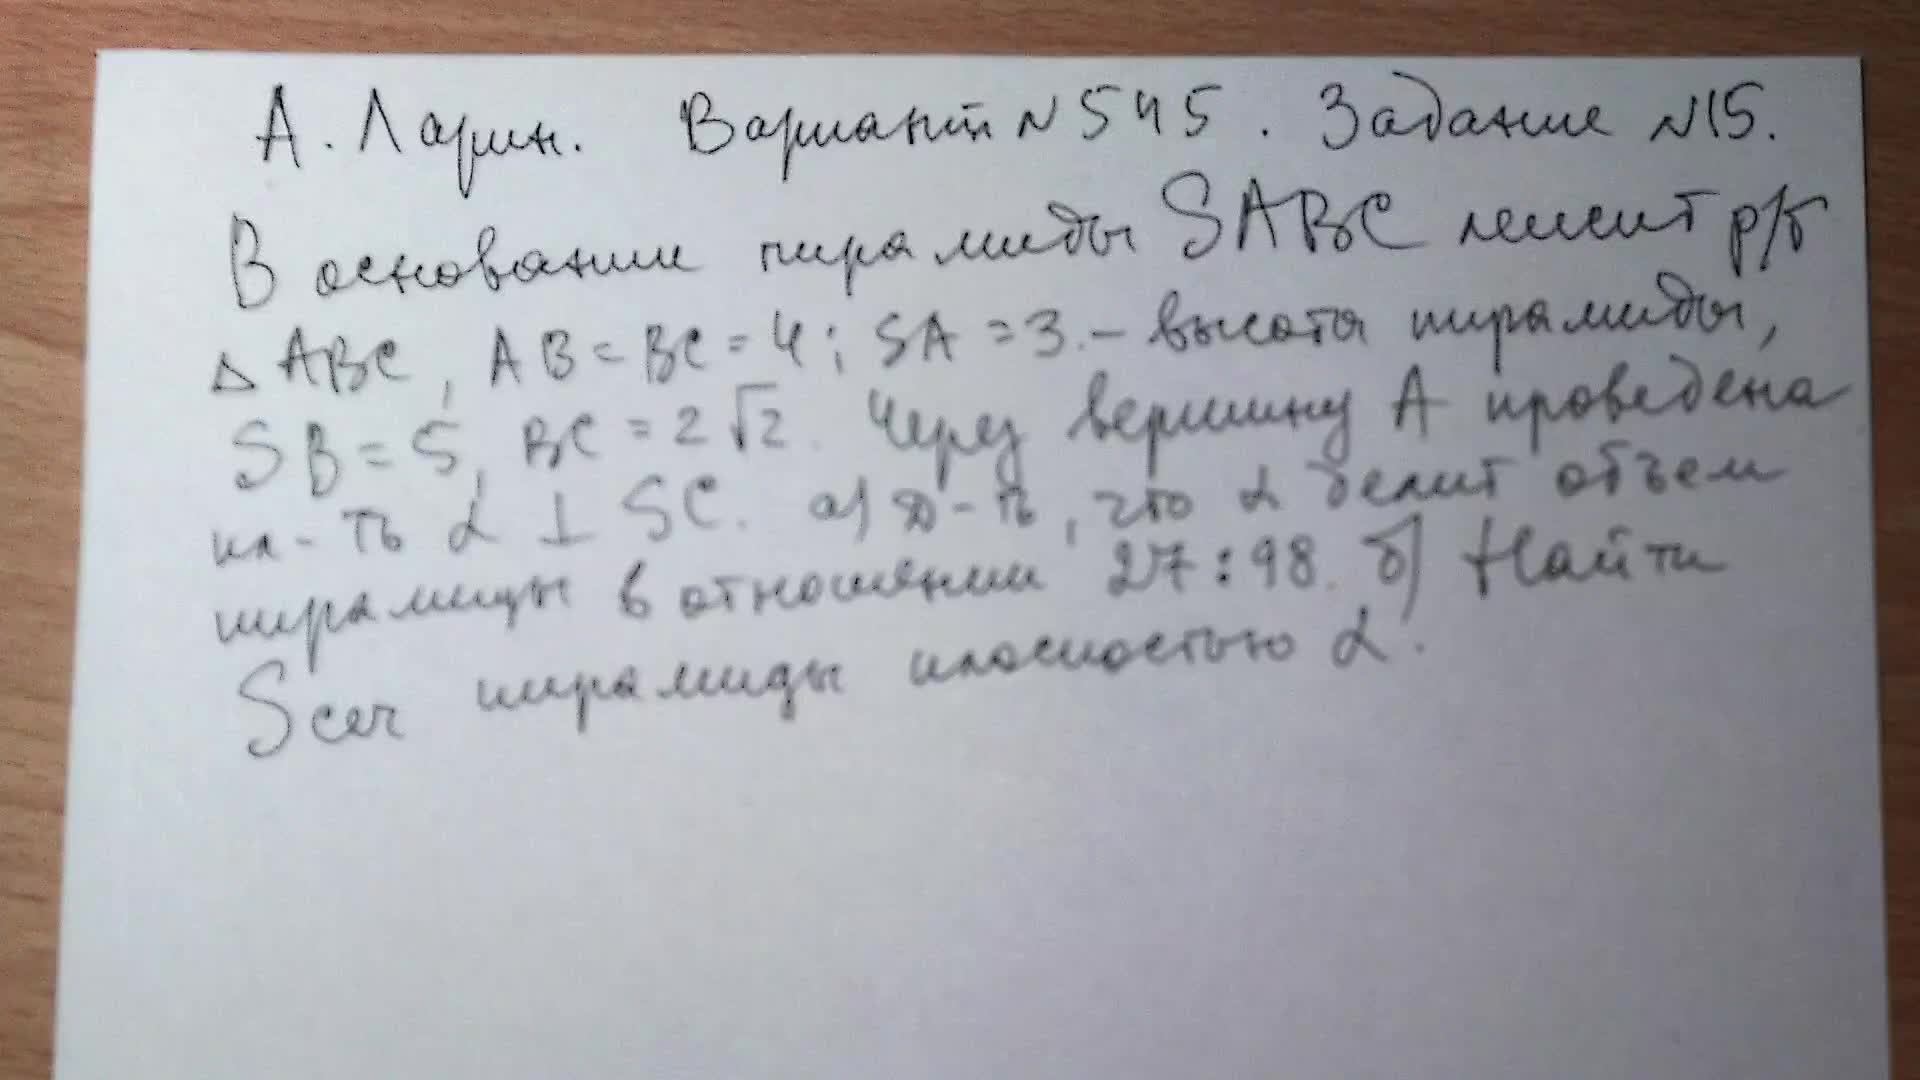 А. Ларин. Вариант №545. Задание №15.
В основании пирамиды SABC лежит р/б
△ ABC, AB = BC = 4; SA = 3. – высота пирамиды,
SB = 5, BC = 2√2. Через вершину A проведена
пл-ть α ⊥ SC. а) Д-ть, что α делит объем
пирамиды в отношении 27:98. б) Найти
Sсеч пирамиды плоскостью α.